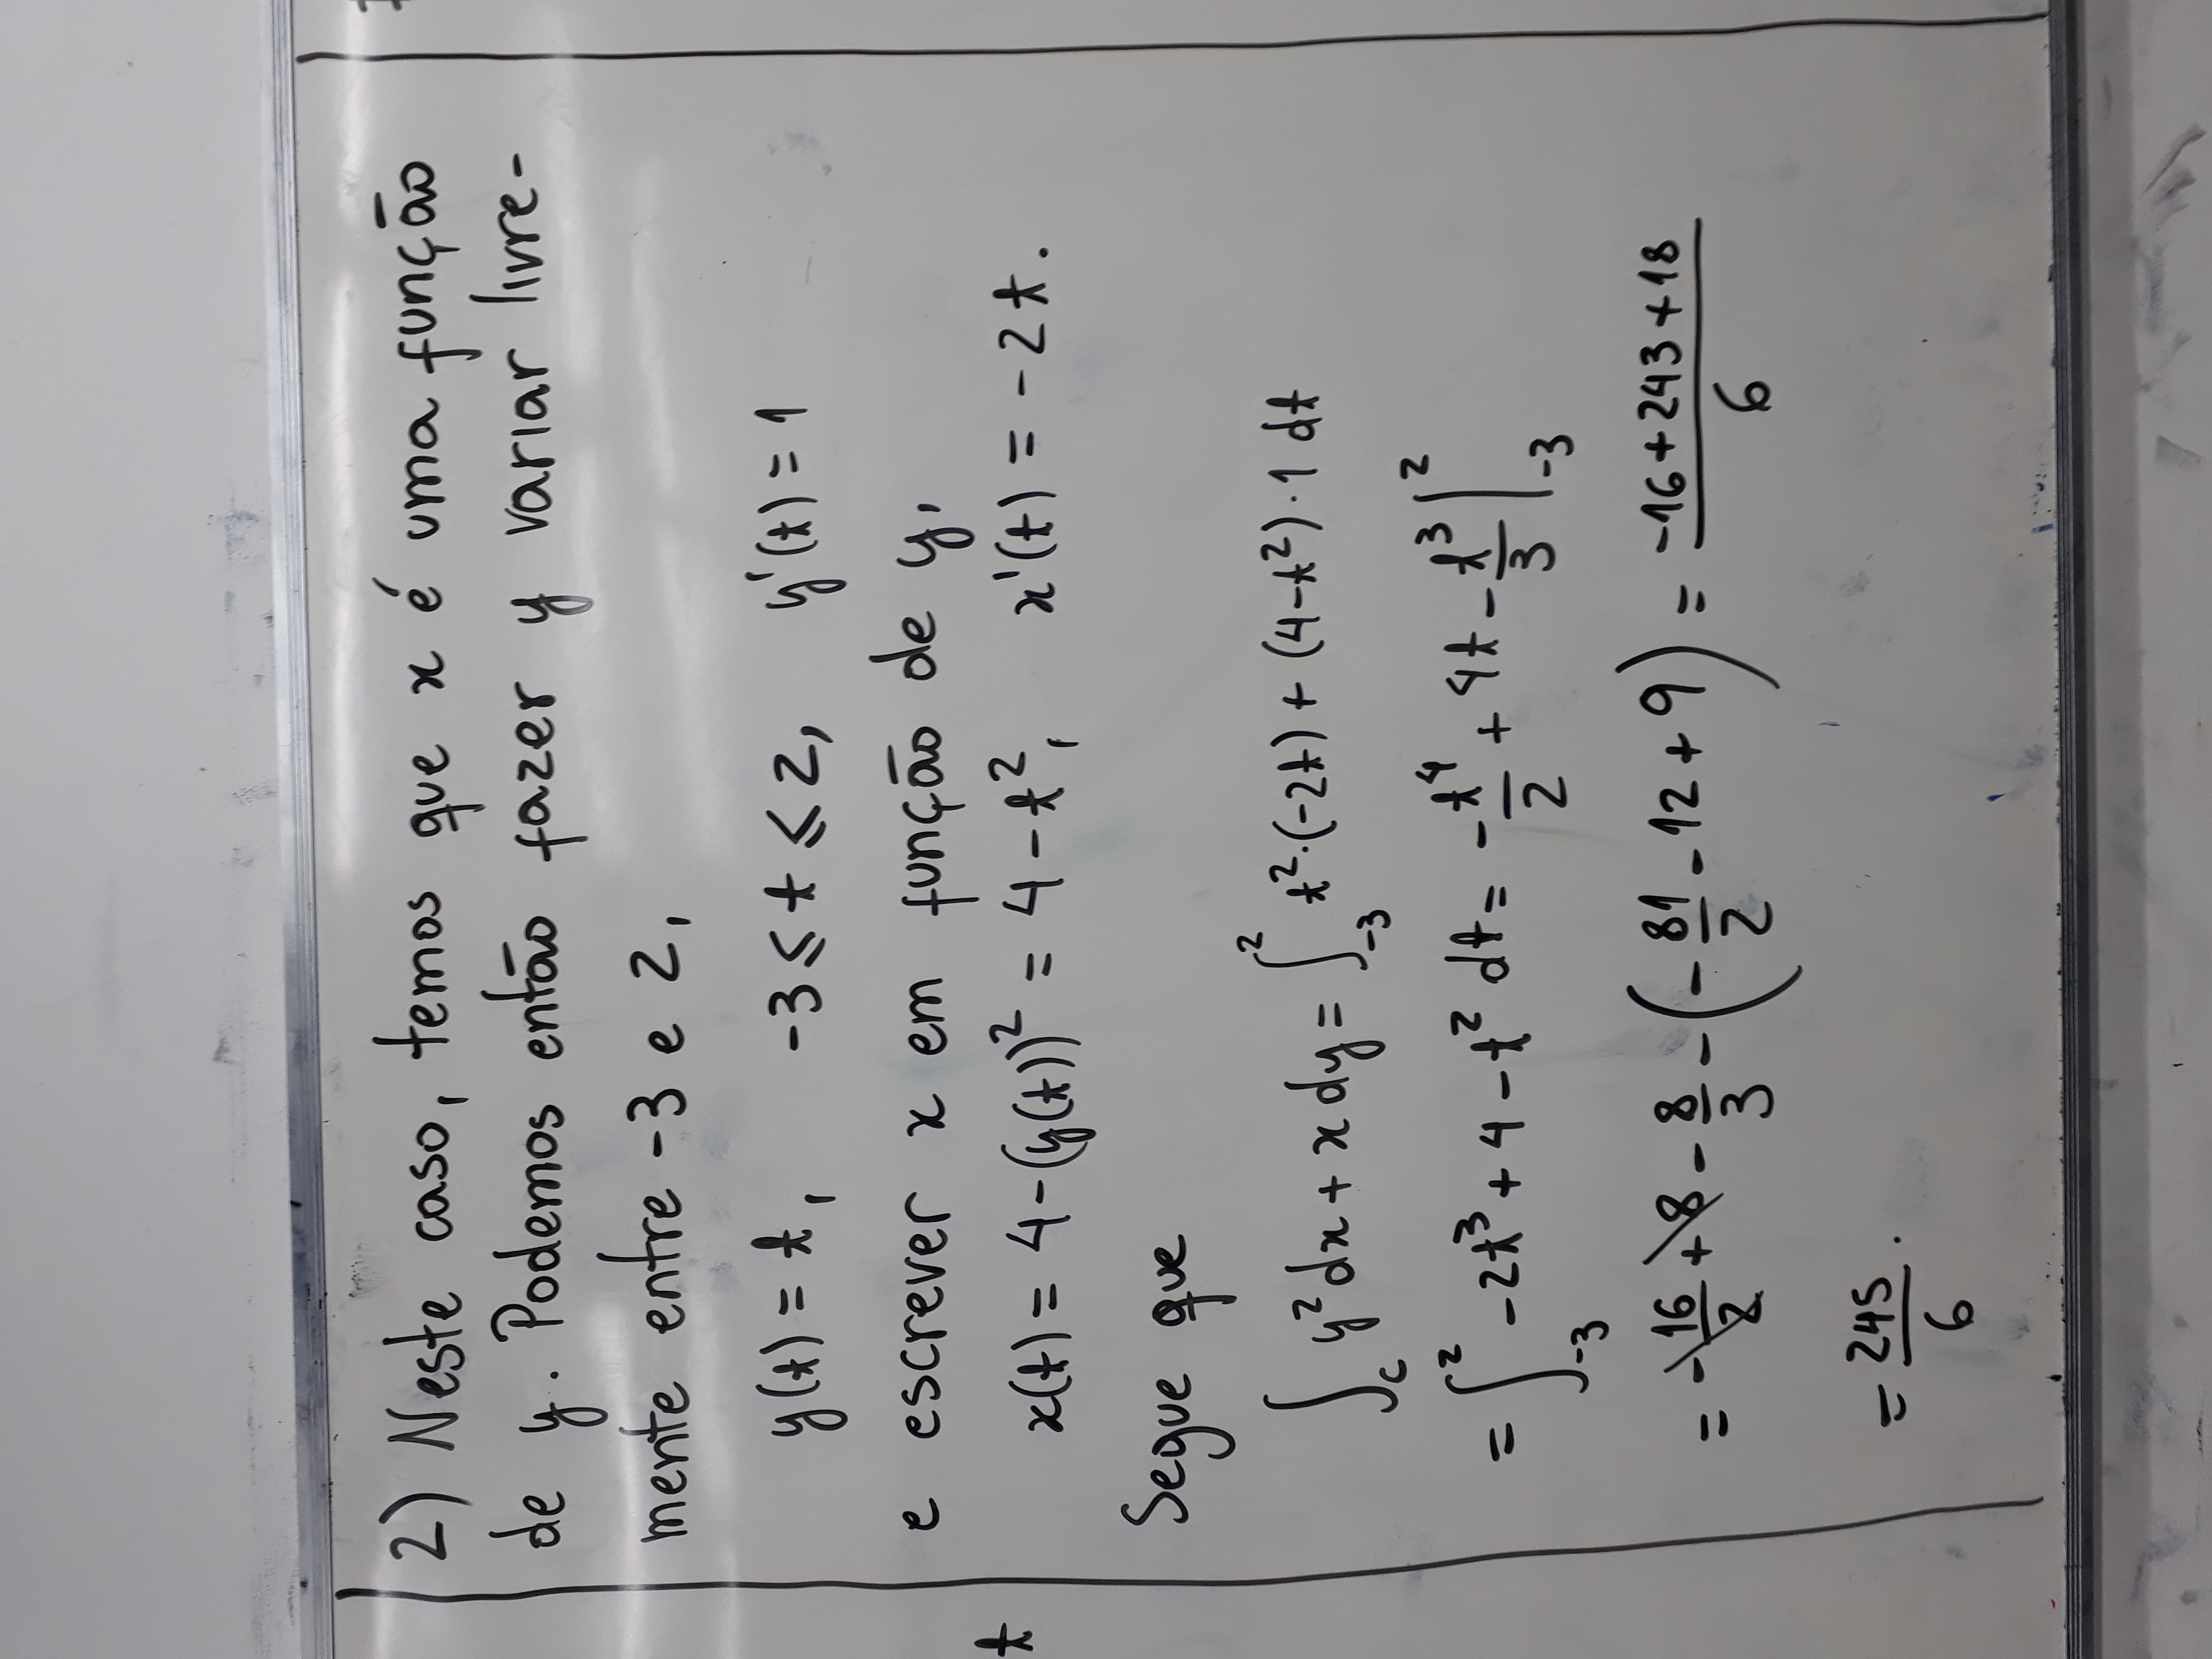 2) Neste caso, temos que x é uma função
de y. Podemos então fazer y variar livre-
mente entre -3 e 2,
y(t) = t, -3 ≤ t ≤ 2, y'(t) = 1
e escrever x em função de y,
t
x(t) = 4-(y(t))² = 4-t², x'(t) = -2t.
Segue que
∫_C y²dx + x dy = ∫_{-3}^{2} t²·(-2t) + (4-t²)·1 dt
= ∫_{-3}^{2} -2t³ + 4 - t² dt = -t⁴/2 + 4t - t³/3 |_{-3}^{2}
= -16/2 + 8 - 8/3 - (-81/2 - 12 + 9) = (-16+243+18)/6
= 245/6.